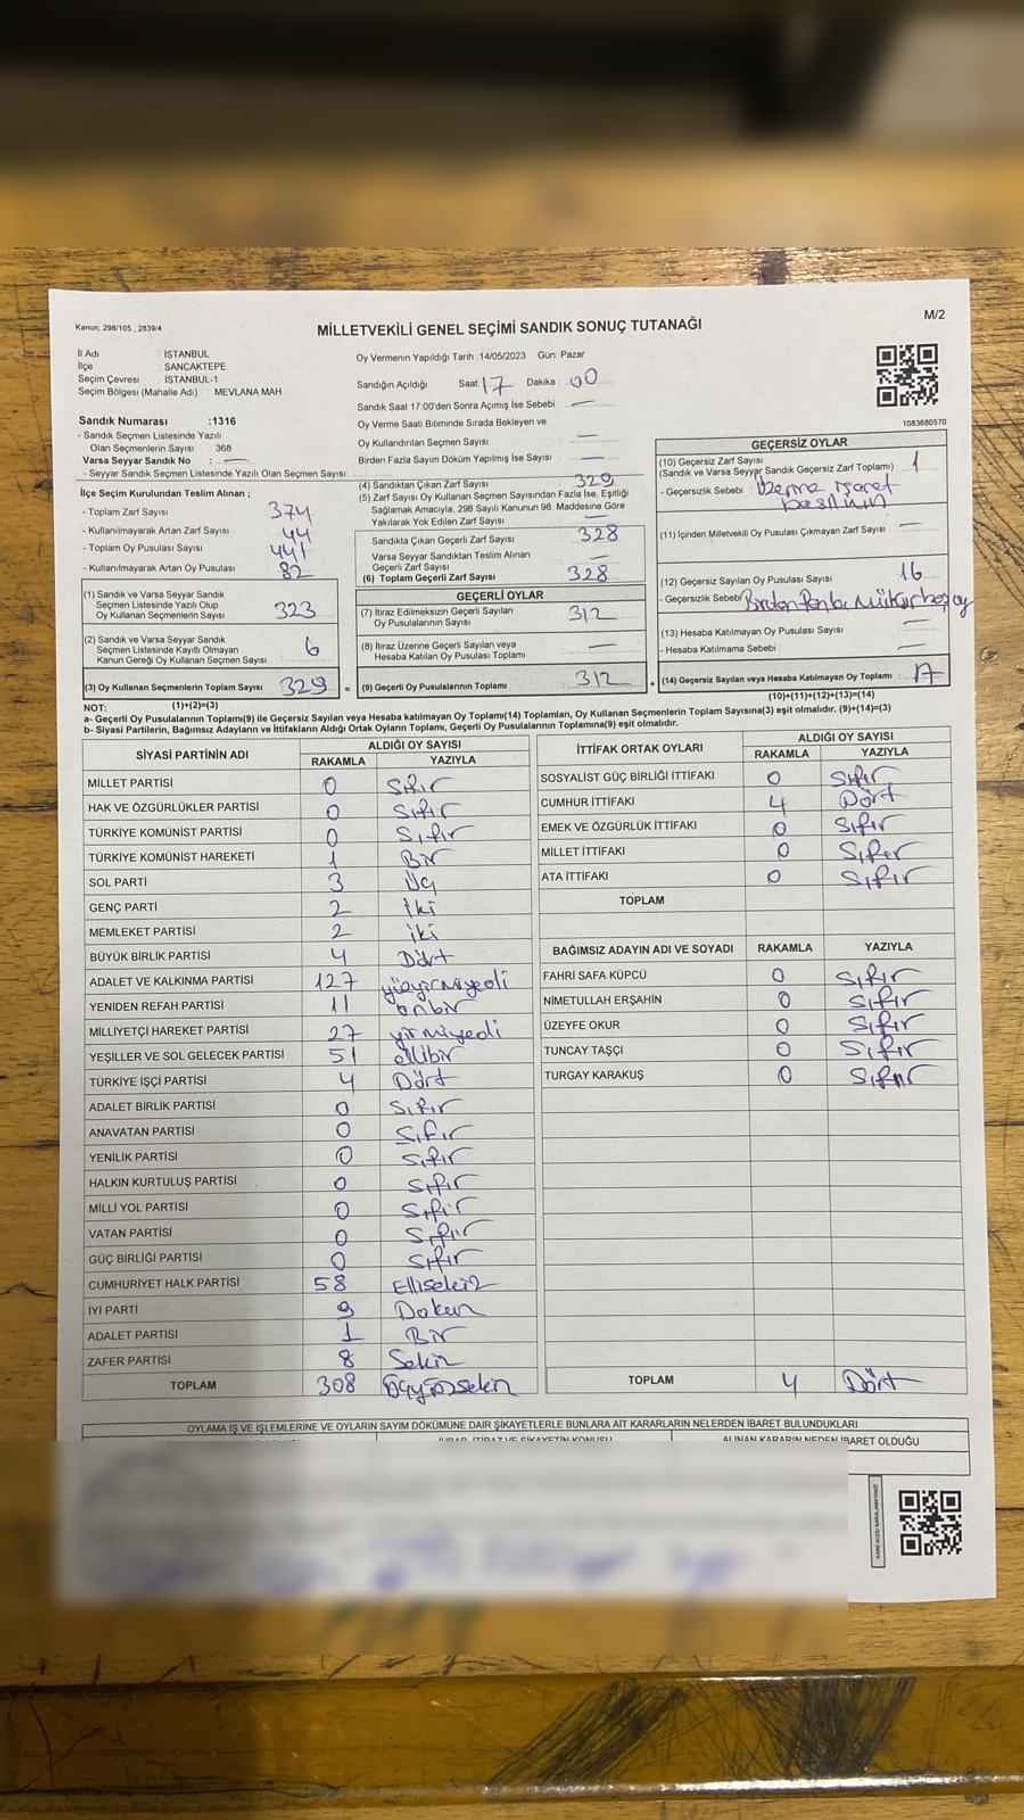 Kanun; 298/105 , 2839/4
MİLLETVEKİLİ GENEL SEÇİMİ SANDIK SONUÇ TUTANAĞI
M/2
İl Adı İSTANBUL
İlçe SANCAKTEPE
Seçim Çevresi İSTANBUL-1
Seçim Bölgesi (Mahalle Adı) MEVLANA MAH
Sandık Numarası :1316
- Sandık Seçmen Listesinde Yazılı
Olan Seçmenlerin Sayısı 368
Varsa Seyyar Sandık No : —
- Seyyar Sandık Seçmen Listesinde Yazılı Olan Seçmen Sayısı:
İlçe Seçim Kurulundan Teslim Alınan ;
- Toplam Zarf Sayısı 374
- Kullanılmayarak Artan Zarf Sayısı 44
- Toplam Oy Pusulası Sayısı 441
- Kullanılmayarak Artan Oy Pusulası 82
(1) Sandık ve Varsa Seyyar Sandık
Seçmen Listesinde Yazılı Olup
Oy Kullanan Seçmenlerin Sayısı 323
(2) Sandık ve Varsa Seyyar Sandık
Seçmen Listesinde Kayıtlı Olmayan
Kanun Gereği Oy Kullanan Seçmen Sayısı 6
(3) Oy Kullanan Seçmenlerin Toplam Sayısı 329
Oy Vermenin Yapıldığı Tarih :14/05/2023 Gün: Pazar
Sandığın Açıldığı Saat 17 Dakika 00
Sandık Saat 17:00'den Sonra Açımış İse Sebebi —
Oy Verme Saati Bitiminde Sırada Bekleyen ve
Oy Kullandırılan Seçmen Sayısı —
Birden Fazla Sayım Döküm Yapılmış İse Sayısı —
(4) Sandıktan Çıkan Zarf Sayısı 329
(5) Zarf Sayısı Oy Kullanan Seçmen Sayısından Fazla İse, Eşitliği
Sağlamak Amacıyla, 298 Sayılı Kanunun 98. Maddesine Göre
Yakılarak Yok Edilen Zarf Sayısı —
Sandıkta Çıkan Geçerli Zarf Sayısı 328
Varsa Seyyar Sandıktan Teslim Alınan
Geçerli Zarf Sayısı —
(6) Toplam Geçerli Zarf Sayısı 328
GEÇERLİ OYLAR
(7) İtiraz Edilmeksizin Geçerli Sayılan
Oy Pusulalarının Sayısı 312
(8) İtiraz Üzerine Geçerli Sayılan veya
Hesaba Katılan Oy Pusulası Toplamı —
= (9) Geçerli Oy Pusulalarının Toplamı 312
1083680570
GEÇERSİZ OYLAR
(10) Geçersiz Zarf Sayısı 1
(Sandık ve Varsa Seyyar Sandık Geçersiz Zarf Toplamı)
- Geçersizlik Sebebi Üzerine işaret
(11) İçinden Milletvekili Oy Pusulası Çıkmayan Zarf Sayısı —
(12) Geçersiz Sayılan Oy Pusulası Sayısı 16
- Geçersizlik Sebebi
(13) Hesaba Katılmayan Oy Pusulası Sayısı —
- Hesaba Katılmama Sebebi —
+ (14) Geçersiz Sayılan veya Hesaba Katılmayan Oy Toplamı : 17
(10)+(11)+(12)+(13)=(14)
NOT: (1)+(2)=(3)
a- Geçerli Oy Pusulalarının Toplamı(9) ile Geçersiz Sayılan veya Hesaba katılmayan Oy Toplamı(14) Toplamları, Oy Kullanan Seçmenlerin Toplam Sayısına(3) eşit olmalıdır. (9)+(14)=(3)
b- Siyasi Partilerin, Bağımsız Adayların ve İttifakların Aldığı Ortak Oyların Toplamı, Geçerli Oy Pusulalarının Toplamına(9) eşit olmalıdır.
SİYASİ PARTİNİN ADI ALDIĞI OY SAYISI
RAKAMLA YAZIYLA
MİLLET PARTİSİ 0 Sıfır
HAK VE ÖZGÜRLÜKLER PARTİSİ 0 Sıfır
TÜRKİYE KOMÜNİST PARTİSİ 0 Sıfır
TÜRKİYE KOMÜNİST HAREKETİ 1 Bir
SOL PARTİ 3 Üç
GENÇ PARTİ 2 İki
MEMLEKET PARTİSİ 2 iki
BÜYÜK BİRLİK PARTİSİ 4 Dört
ADALET VE KALKINMA PARTİSİ 127 yüzyirmiyedi
YENİDEN REFAH PARTİSİ 11 onbir
MİLLİYETÇİ HAREKET PARTİSİ 27 yirmiyedi
YEŞİLLER VE SOL GELECEK PARTİSİ 51 ellibir
TÜRKİYE İŞÇİ PARTİSİ 4 Dört
ADALET BİRLİK PARTİSİ 0 Sıfır
ANAVATAN PARTİSİ 0 Sıfır
YENİLİK PARTİSİ 0 Sıfır
HALKIN KURTULUŞ PARTİSİ 0 Sıfır
MİLLİ YOL PARTİSİ 0 Sıfır
VATAN PARTİSİ 0 Sıfır
GÜÇ BİRLİĞİ PARTİSİ 0 Sıfır
CUMHURİYET HALK PARTİSİ 58 Ellisekiz
İYİ PARTİ 9 Dokuz
ADALET PARTİSİ 1 Bir
ZAFER PARTİSİ 8 Sekiz
TOPLAM 308 Üçyüzsekiz
İTTİFAK ORTAK OYLARI ALDIĞI OY SAYISI
RAKAMLA YAZIYLA
SOSYALİST GÜÇ BİRLİĞİ İTTİFAKI 0 Sıfır
CUMHUR İTTİFAKI 4 Dört
EMEK VE ÖZGÜRLÜK İTTİFAKI 0 Sıfır
MİLLET İTTİFAKI 0 Sıfır
ATA İTTİFAKI 0 Sıfır
TOPLAM
BAĞIMSIZ ADAYIN ADI VE SOYADI RAKAMLA YAZIYLA
FAHRİ SAFA KÜPCÜ 0 Sıfır
NİMETULLAH ERŞAHİN 0 Sıfır
ÜZEYFE OKUR 0 Sıfır
TUNCAY TAŞÇI 0 Sıfır
TURGAY KARAKUŞ 0 Sıfır
TOPLAM 4 Dört
OYLAMA İŞ VE İŞLEMLERİNE VE OYLARIN SAYIM DÖKÜMÜNE DAİR ŞİKAYETLERLE BUNLARA AİT KARARLARIN NELERDEN İBARET BULUNDUKLARI
ALINAN KARARIN NEDEN İBARET OLDUĞU